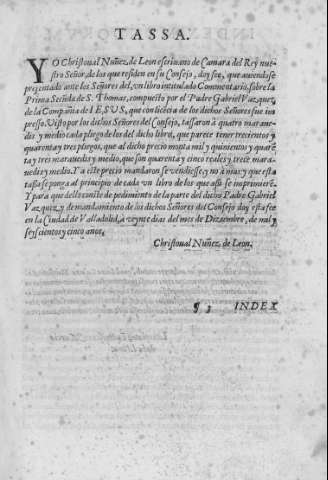 TASSA.
YO Christoual Nuñez de Leon escriuano de Camara del Rey nue-
stro Señor, de los que residen en su Consejo, doy fee, que auiendose
presentado ante los Señores del, vn libro intitulado Commentario, sobre la
Prima Secunda de S. Thomas, compuesto por el Padre Gabriel Vazquez,
de la Compañia de IESVS, que con licēcia de los dichos Señores fue im
presso. Visto por los dichos Señores del Consejo, tassaron â quatro maraue-
dis y medio cada pliego de los del dicho libro, que parece tener trecientos y
quarenta y tres pliegos, que al dicho precio monta mil y quinientos y quarē
ta y tres marauedis y medio, que son quarenta y cinco reales y trece mara-
uedis y medio. Y a este precio mandaron se vendiesse, y no â mas; y que esta
tassa se ponga al principio de cada vn libro de los que assi se imprimiere.
Y para que dello conste de pedimiento de la parte del dicho Padre Gabriel
Vazquez, y de mandamiento de los dichos Señores del Consejo doy esta fee
en la Ciudad de Valladolid, a veynte dias del mes de Diziembre, de mil y
seyscientos y cinco años.
Christoual Nuñez de Leon.
¶ 3 INDEX